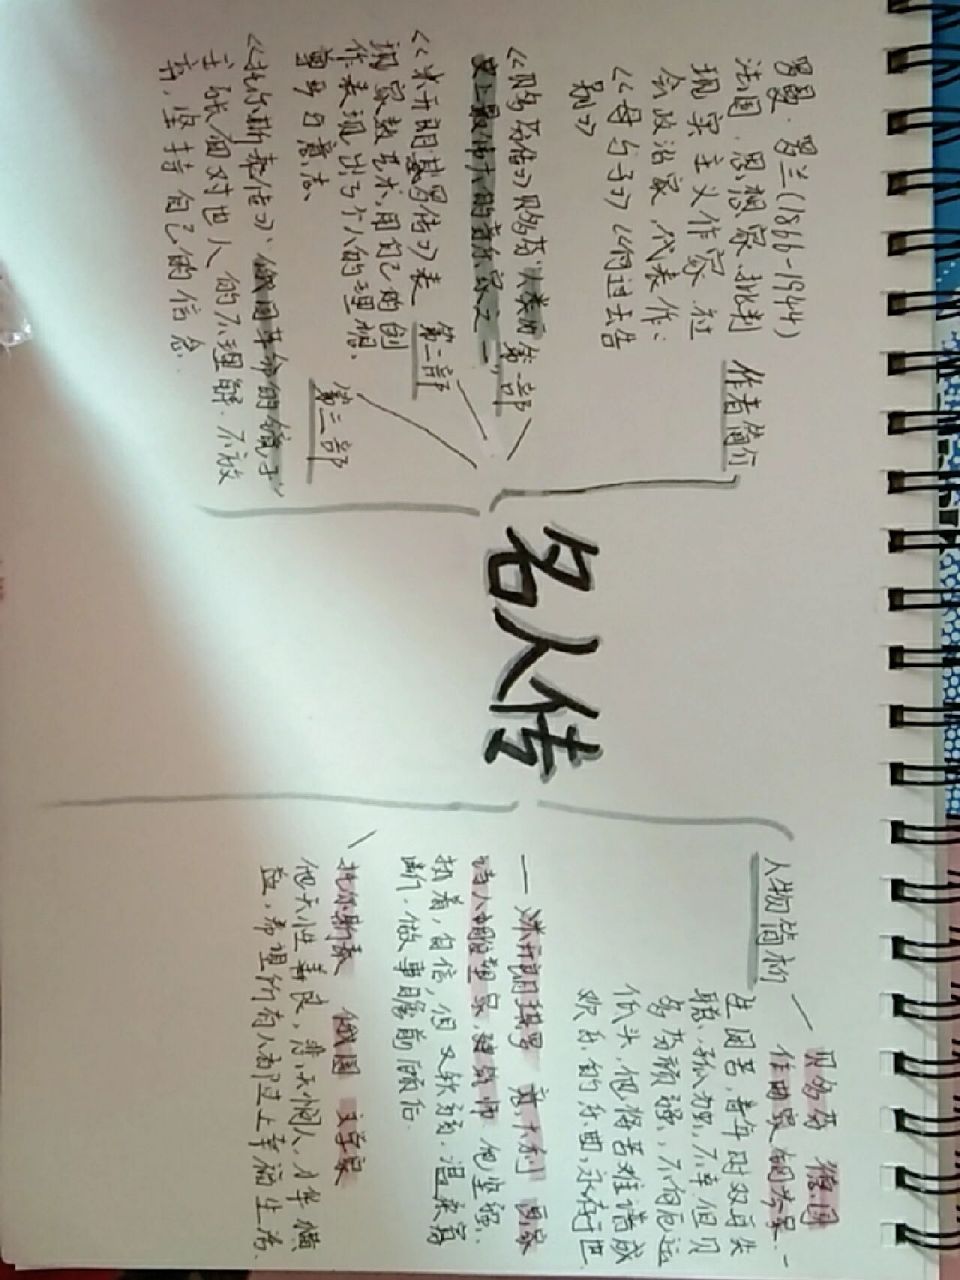 名人传
作者简介
罗曼·罗兰(1866-1944)
法国.思想家.批判
现实主义作家.社
会政治家.代表作:
《母与子》《向过去告
别》
第一部
《贝多芬传》贝多芬:人类历
史上最伟大的音乐家之一,
第二部
《米开朗基罗传》表
现家敖艺术,用自己的创
作表现出了个人的理想、
尊号与意志、
第三部
《托尔斯泰传》、俄国革命的镜子,
主张面对他人的不理解.不放
弃,坚持自己的信念.
人物简析
贝多芬 德国
作曲家 钢琴家.一
生困苦,青年时双耳失
聪、孤独,不幸但贝
多芬顽强,不向厄运
低头,他将苦难谱成
欢乐的乐曲,永存于世
米开朗基罗 意大利 画家
诗人雕塑家,建筑师 他坚强、
执着,自信,但又软弱.温柔寡
断.做事瞻前顾后.
托尔斯泰 俄国 文学家
他天性善良,悲天悯人,才华横
益,希望所有人都过上幸福生活.